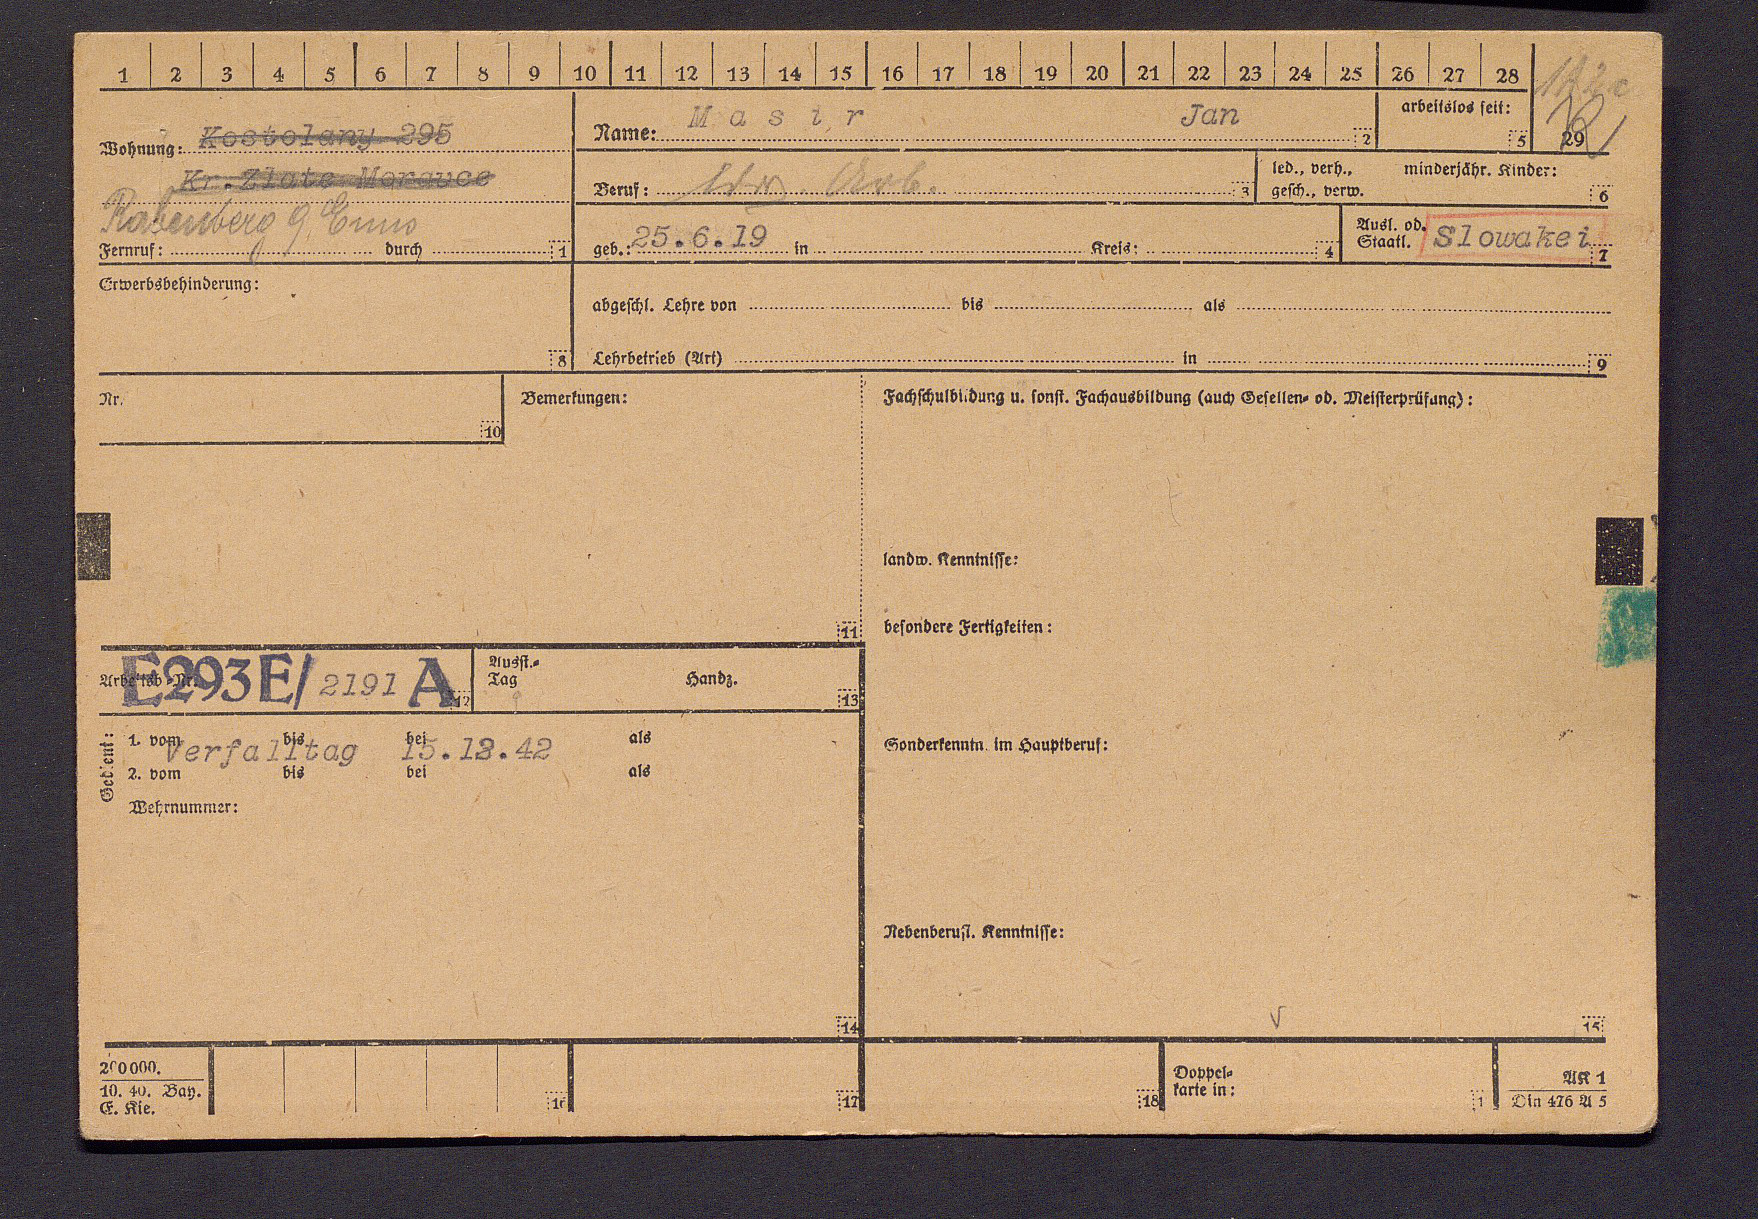 1 2 3 4 5 6 7 8 9 10 11 12 13 14 15 16 17 18 19 20 21 22 23 24 25 26 27 28 29
Wohnung: Kostolany 295
Kr. Zlate Moravce
Rabenberg g. Enns
Fernruf: durch 1
Name: Masir Jan 2
arbeitslos seit: 5
Beruf: ldw. Arb. 3
led., verh.,
gesch., verw.
minderjähr. Kinder: 6
geb.: 25.6.19 in Kreis: 4
Ausl. od.
Staatl. Slowakei 7
Erwerbsbehinderung: 8
abgeschl. Lehre von bis als
Lehrbetrieb (Art) in 9
Nr. 10
Bemerkungen: 11
Fachschulbildung u. sonst. Fachausbildung (auch Gesellen- od. Meisterprüfung):
landw. Kenntnisse:
besondere Fertigkeiten:
Arbeitsb.-Nr. E293E/ 2191 A 12
Ausst.-
Tag Handz. 13
Gedient:
1. vom bis bei als
Verfalltag 15.12.42
2. vom bis bei als
Wehrnummer:
14
Sonderkenntn. im Hauptberuf:
Nebenberufl. Kenntnisse:
15
200000.
10. 40. Bay.
E. Kie.
16 17 18
Doppel-
karte in:
AK 1
Din 476 A 5